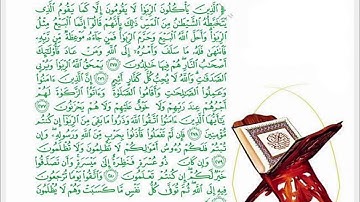 ﴿ الَّذِينَ يَأْكُلُونَ الرِّبَوٰا لَا يَقُومُونَ إِلَّا كَمَا يَقُومُ الَّذِي
يَتَخَبَّطُهُ الشَّيْطَٰنُ مِنَ الْمَسِّ ذَٰلِكَ بِأَنَّهُمْ قَالُوٓا إِنَّمَا الْبَيْعُ مِثْلُ
الرِّبَوٰا وَأَحَلَّ اللَّهُ الْبَيْعَ وَحَرَّمَ الرِّبَوٰا فَمَن جَآءَهُ مَوْعِظَةٌ مِّن رَّبِّهِ
فَانتَهَىٰ فَلَهُ مَا سَلَفَ وَأَمْرُهُٓ إِلَى اللَّهِ وَمَنْ عَادَ فَأُولَٰٓئِكَ
أَصْحَٰبُ النَّارِ هُمْ فِيهَا خَٰلِدُونَ ﴿٢٧٥﴾ يَمْحَقُ اللَّهُ الرِّبَوٰا وَيُرْبِي
الصَّدَقَٰتِ وَاللَّهُ لَا يُحِبُّ كُلَّ كَفَّارٍ أَثِيمٍ ﴿٢٧٦﴾ إِنَّ الَّذِينَ ءَامَنُوا
وَعَمِلُوا الصَّٰلِحَٰتِ وَأَقَامُوا الصَّلَوٰةَ وَءَاتَوُا الزَّكَوٰةَ لَهُمْ
أَجْرُهُمْ عِندَ رَبِّهِمْ وَلَا خَوْفٌ عَلَيْهِمْ وَلَا هُمْ يَحْزَنُونَ ﴿٢٧٧﴾
يَٰٓأَيُّهَا الَّذِينَ ءَامَنُوا اتَّقُوا اللَّهَ وَذَرُوا مَا بَقِيَ مِنَ الرِّبَوٰٓا إِن كُنتُم
مُّؤْمِنِينَ ﴿٢٧٨﴾ فَإِن لَّمْ تَفْعَلُوا فَأْذَنُوا بِحَرْبٍ مِّنَ اللَّهِ وَرَسُولِهِ وَإِن
تُبْتُمْ فَلَكُمْ رُءُوسُ أَمْوَٰلِكُمْ لَا تَظْلِمُونَ وَلَا تُظْلَمُونَ
﴿٢٧٩﴾ وَإِن كَانَ ذُو عُسْرَةٍ فَنَظِرَةٌ إِلَىٰ مَيْسَرَةٍ وَأَن تَصَدَّقُوا
خَيْرٌ لَّكُمْ إِن كُنتُمْ تَعْلَمُونَ ﴿٢٨٠﴾ وَاتَّقُوا يَوْمًا تُرْجَعُونَ
فِيهِ إِلَى اللَّهِ ثُمَّ تُوَفَّىٰ كُلُّ نَفْسٍ مَّا كَسَبَتْ وَهُمْ لَا يُظْلَمُونَ